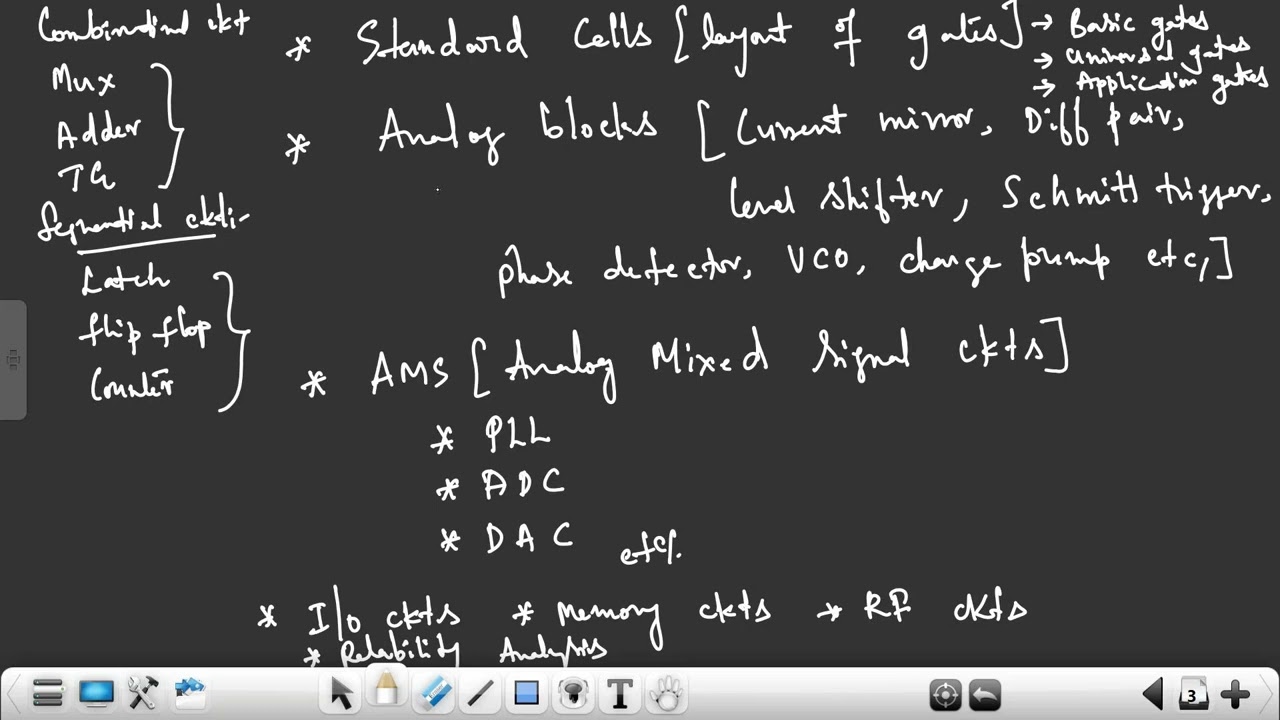 Combinational ckt
Mux
Adder
TG
Sequential ckt:-
Latch
flip flop
Counter
* Standard Cells [layout of gates]
→ Basic gates
→ Universal gates
→ Application gates
* Analog blocks [Current mirror, Diff pair,
level shifter, Schmitt trigger,
phase detector, VCO, charge pump etc,]
* AMS [Analog Mixed Signal ckts]
* PLL
* ADC
* DAC etc/.
* I/o ckts * Memory ckts * RF ckts
* Relability Analysis
3